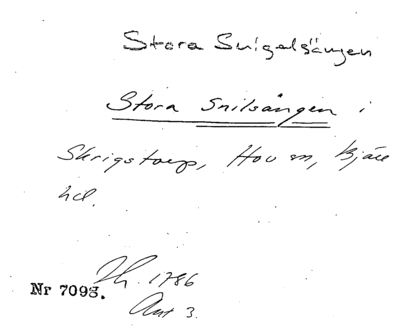 Stora Snigelsängen
Stora Snilsången i
Skrigstorp, Hov sn, Bjäre
hd.
Nr 7093. Jh. 1786
Akt 3.